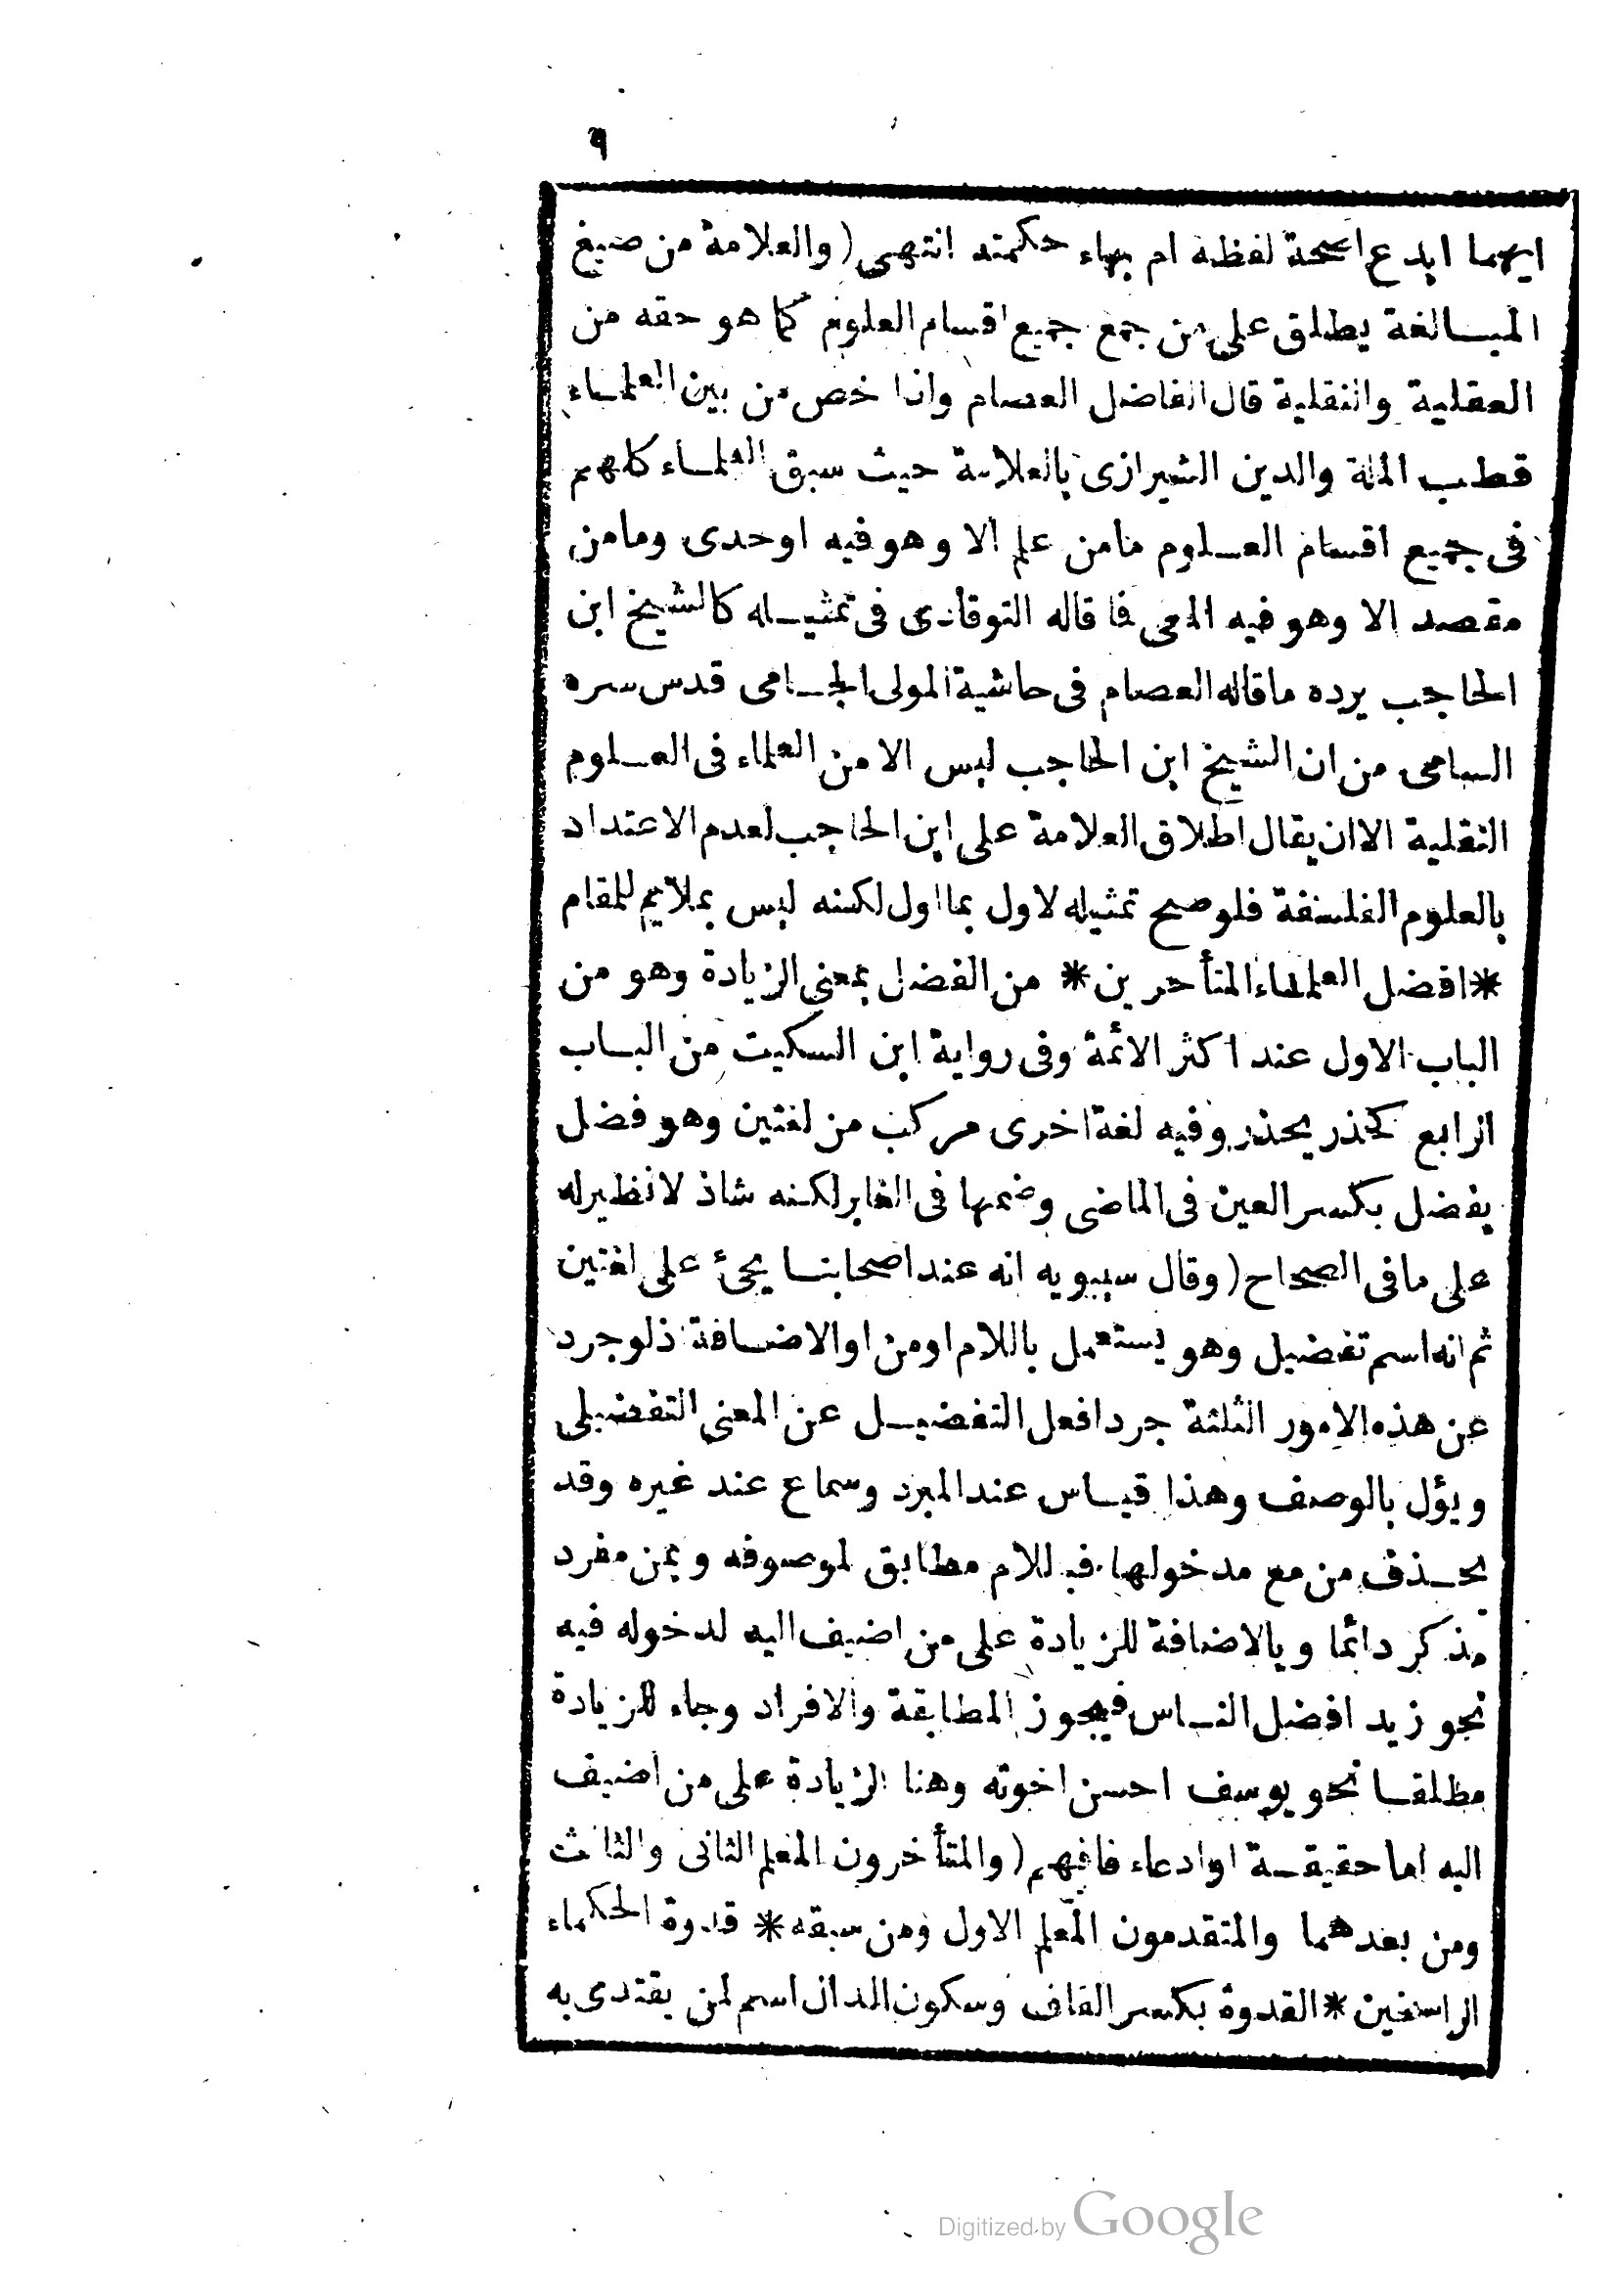 ٩
ايهما ابدع اصحة لفظه ام بهاء حكمته انتهى (والعلامة من صيغ
المبالغة يطلق على من جمع جميع اقسام العلوم كما هو حقه من
العقلية والنقلية قال الفاضل العصام وانا خص من بين العلماء
قطب الملة والدين الشيرازى بالعلامة حيث سبق العلماء كلهم
فى جميع اقسام العلوم مامن علم الا وهو فيه اوحدى ومامن
مقصد الا وهو فيه المعى فما قاله التوقادى فى تمثيله كالشيخ ابن
الحاجب يرده ماقاله العصام فى حاشية المولى الجامى قدس سره
السامى من ان الشيخ ابن الحاجب ليس الا من العلماء فى العلوم
النقلية الا ان يقال اطلاق العلامة على ابن الحاجب لعدم الاعتداد
بالعلوم الفلسفة فلو صح تمثيله لاول بما اول لكنه ليس بملايم للمقام
*افضل العلماء المتأخرين* من الفضل بمعنى الزيادة وهو من
الباب الاول عند اكثر الائمة وفى رواية ابن السكيت من الباب
الرابع كحذر يحذر وفيه لغة اخرى مركب من لغتين وهو فضل
يفضل بكسر العين فى الماضى وضمها فى الغابر لكنه شاذ لا نظير له
على مافى الصحاح (وقال سيبويه انه عند اصحابنا يجئ على لغتين
ثم انه اسم تفضيل وهو يستعمل باللام او من او الاضافة ذلو جرد
عن هذه الامور الثلثة جرد افعل التفضيل عن المعنى التفضيلى
ويؤل بالوصف وهذا قياس عند المبرد وسماع عند غيره وقد
يحذف من مع مدخولها فباللام مطابق لموصوفه وبمن مفرد
مذكر دائما وبالاضافة للزيادة على من اضيف اليه لدخوله فيه
نحو زيد افضل الناس فيجوز المطابقة والافراد وجاء للزيادة
مطلقا نحو يوسف احسن اخوته وهنا الزيادة على من اضيف
اليه اما حقيقة او ادعاء فافهم (والمتأخرون المعلم الثانى والثالث
ومن بعدهما والمتقدمون المعلم الاول ومن سبقه* قدوة الحكماء
الراسخين *القدوة بكسر القاف وسكون الدال اسم لمن يقتدى به
Digitized by Google